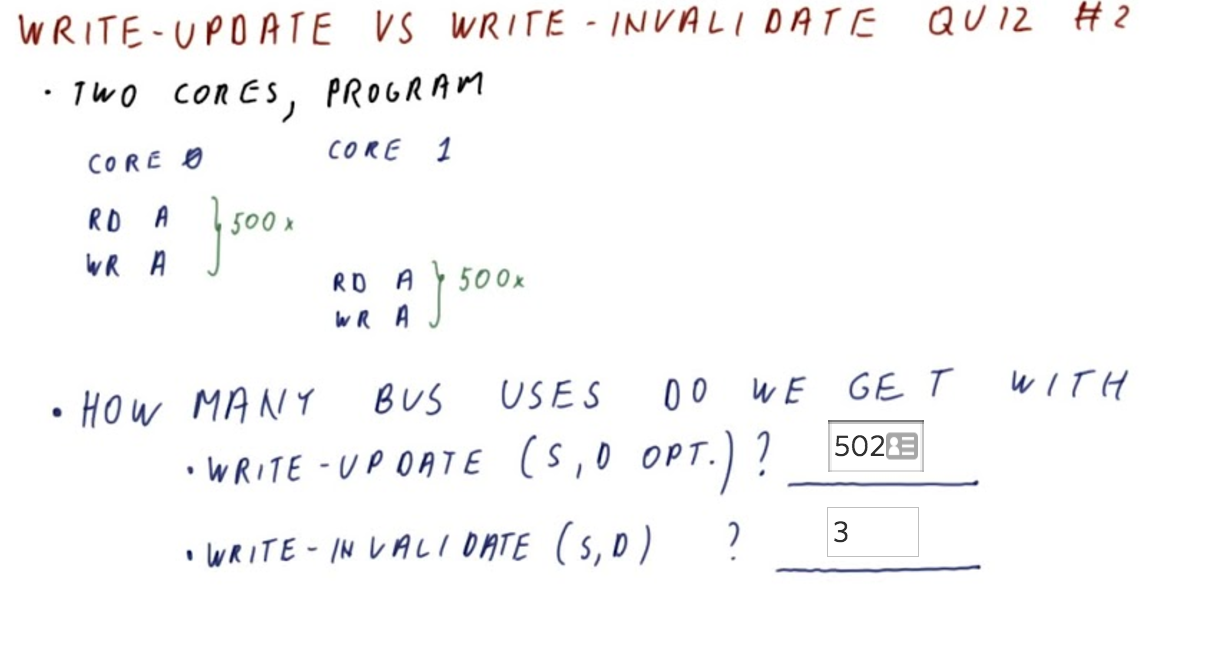 WRITE-UPDATE VS WRITE-INVALIDATE QUIZ #2
• TWO CORES, PROGRAM
CORE 0 CORE 1
RD A } 500x
WR A
RD A } 500x
WR A
• HOW MANY BUS USES DO WE GET WITH
• WRITE-UPDATE (S,D OPT.)? 502
• WRITE-INVALIDATE (S,D) ? 3